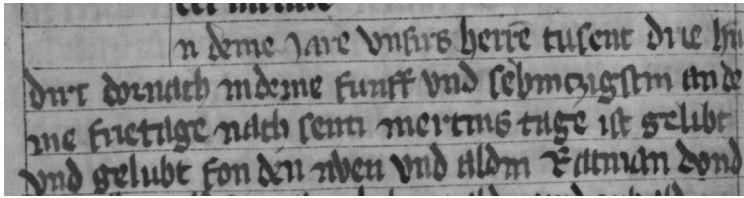 n deme Jare vnsirs herrē tusent drie hu
dirt dornach in deme funff vnd sebinczigstin an de
me frietage nach senti mertins tage ist gelibt
vnd gelubt fon den nwen vnd aldin Ratman